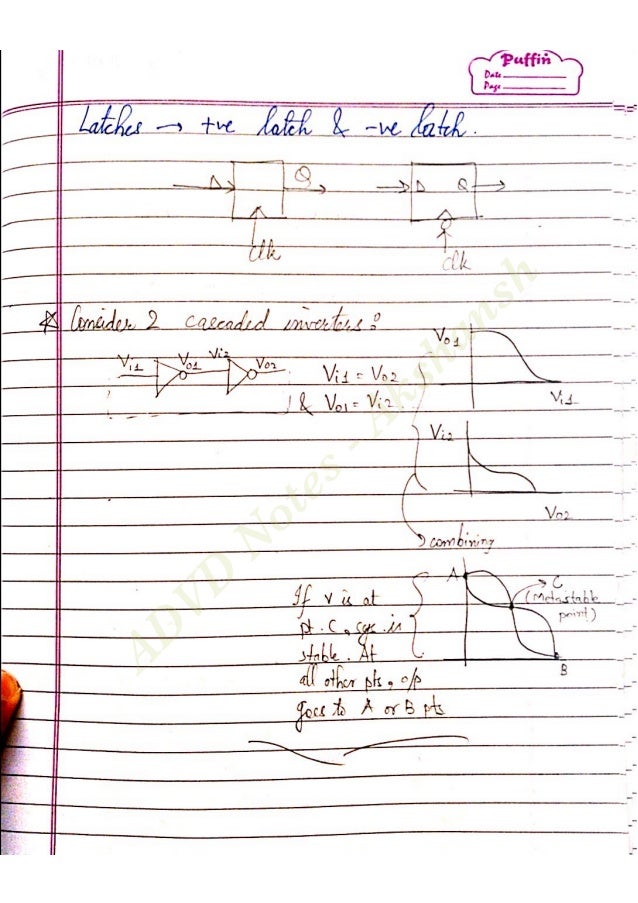 Puffin
Date
Page
Latches → +ve latch & -ve latch.
D Q
D Q
clk
clk
Consider 2 cascaded inverters:
Vi1 Vo1 Vi2 Vo2
Vi1 = Vo2
& Vo1 = Vi2
Vo1
Vi1
Vi2
Vo2
combining
A
C
(Metastable
point)
B
If v is at
pt. C, sys. is
stable. At
all other pts, o/p
goes to A or B pts
ADVD Notes - Akshansh